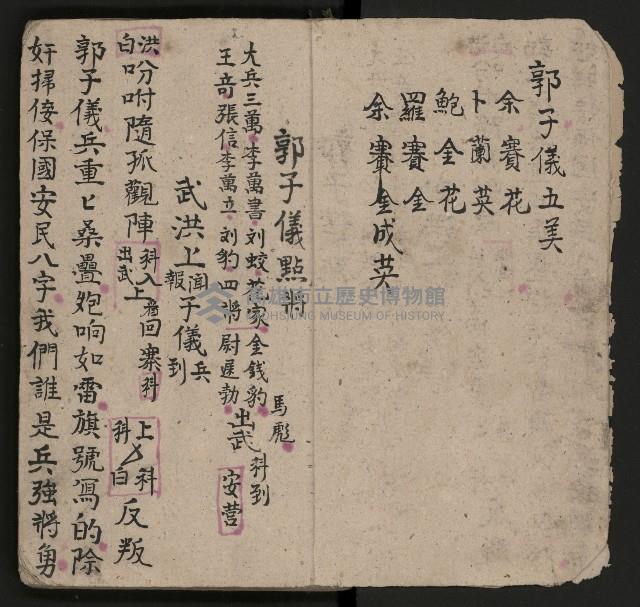 郭子儀五美
余賽花
卜蘭英
鮑金花
羅賽金
余賽金成英
郭子儀點將
大兵三萬李萬書刘蛟花豹金錢豹馬彪科到
王奇張信李萬立刘豹四將尉遲勃出武安营
武洪上闻報子儀兵到
洪白吩咐隨孤觀陣科出武入上介回寨科上科又科白反叛
郭子儀兵重匕桑疊炮响如雷旗號寫的除
奸掃佞保國安民八字我們誰是兵強將勇
高雄市立歷史博物館
KAOHSIUNG MUSEUM OF HISTORY